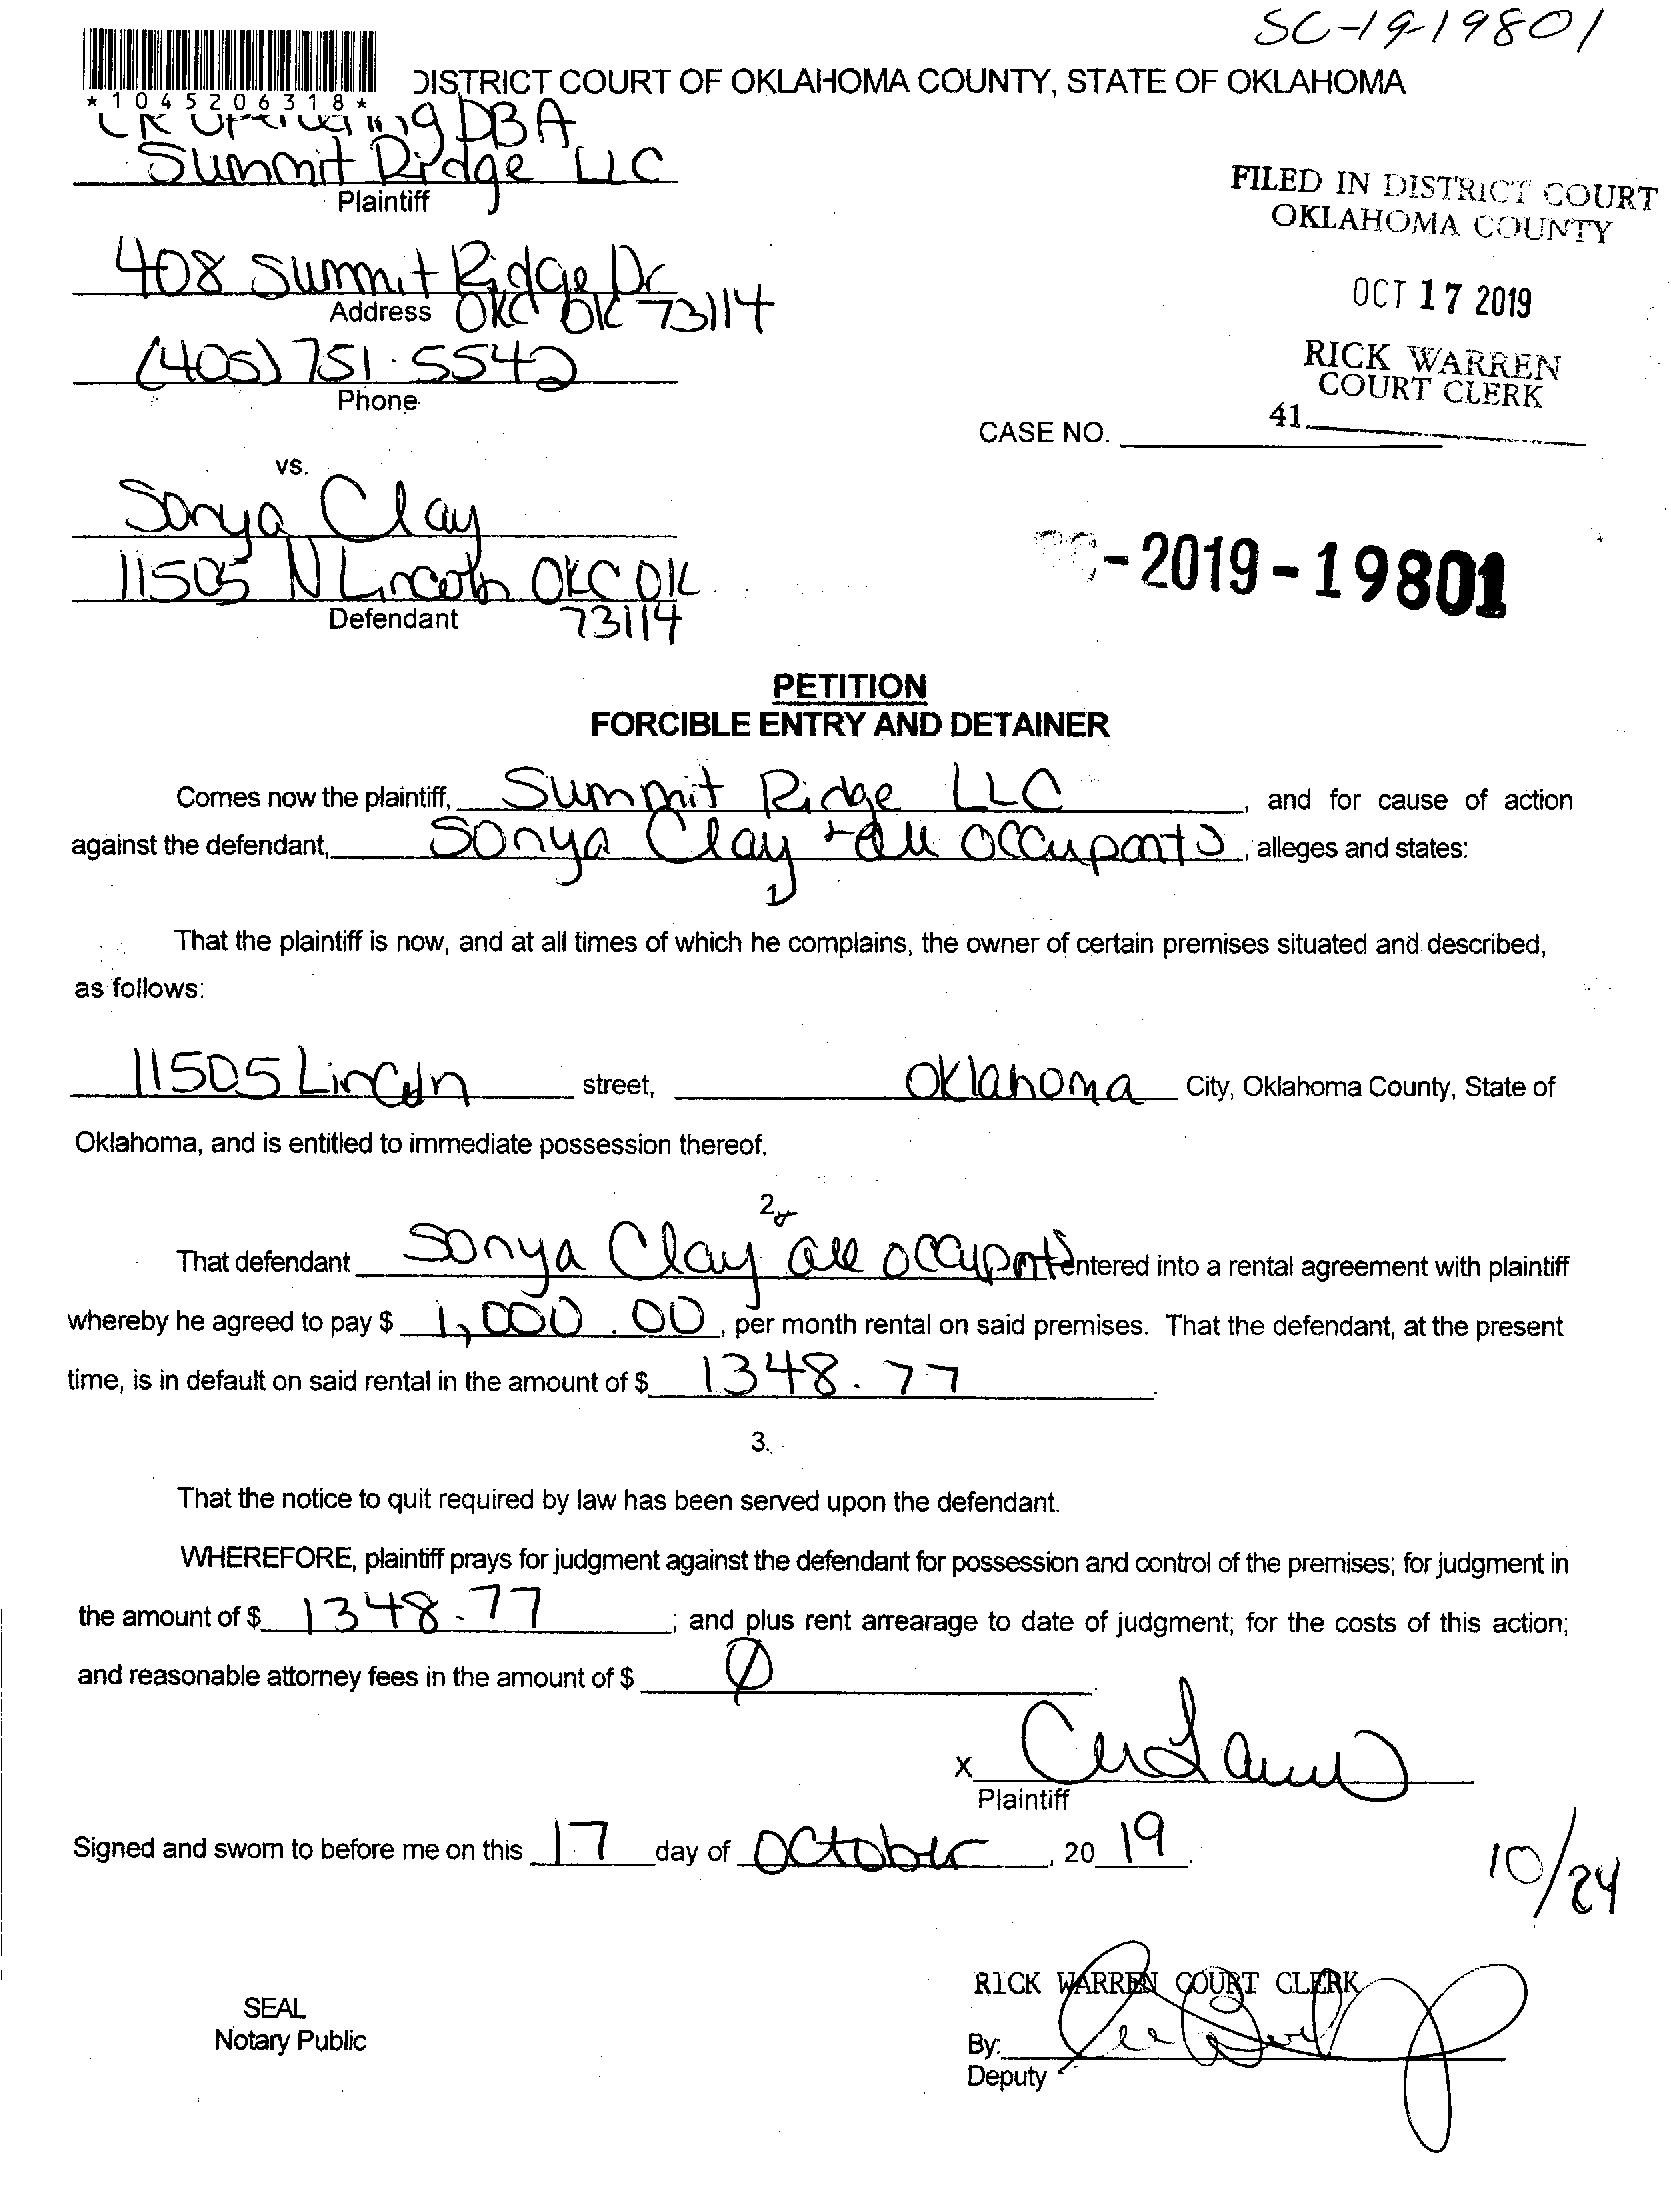 SC-19-19801
*1045206318*
DISTRICT COURT OF OKLAHOMA COUNTY, STATE OF OKLAHOMA
DBA
Summit Ridge LLC
Plaintiff
FILED IN DISTRICT COURT
OKLAHOMA COUNTY
408 Summit Ridge Dr
Address OKC OK 73114
OCT 17 2019
(405) 751-5542
Phone
RICK WARREN
COURT CLERK
41
CASE NO.
vs.
Sonya Clay
11505 N Lincoln OKC OK
Defendant 73114
-2019-19801
PETITION
FORCIBLE ENTRY AND DETAINER
Comes now the plaintiff, Summit Ridge LLC, and for cause of action
against the defendant, Sonya Clay + all occupants, alleges and states:
1
That the plaintiff is now, and at all times of which he complains, the owner of certain premises situated and described,
as follows:
11505 Lincoln street, Oklahoma City, Oklahoma County, State of
Oklahoma, and is entitled to immediate possession thereof.
2
That defendant Sonya Clay & all occupants entered into a rental agreement with plaintiff
whereby he agreed to pay $ 1,000.00, per month rental on said premises. That the defendant, at the present
time, is in default on said rental in the amount of $ 1348.77.
3.
That the notice to quit required by law has been served upon the defendant.
WHEREFORE, plaintiff prays for judgment against the defendant for possession and control of the premises; for judgment in
the amount of $ 1348.77; and plus rent arrearage to date of judgment; for the costs of this action;
and reasonable attorney fees in the amount of $ Ø.
X
Plaintiff
Signed and sworn to before me on this 17 day of October, 20 19.
10/24
RICK WARREN COURT CLERK
SEAL
Notary Public
By:
Deputy